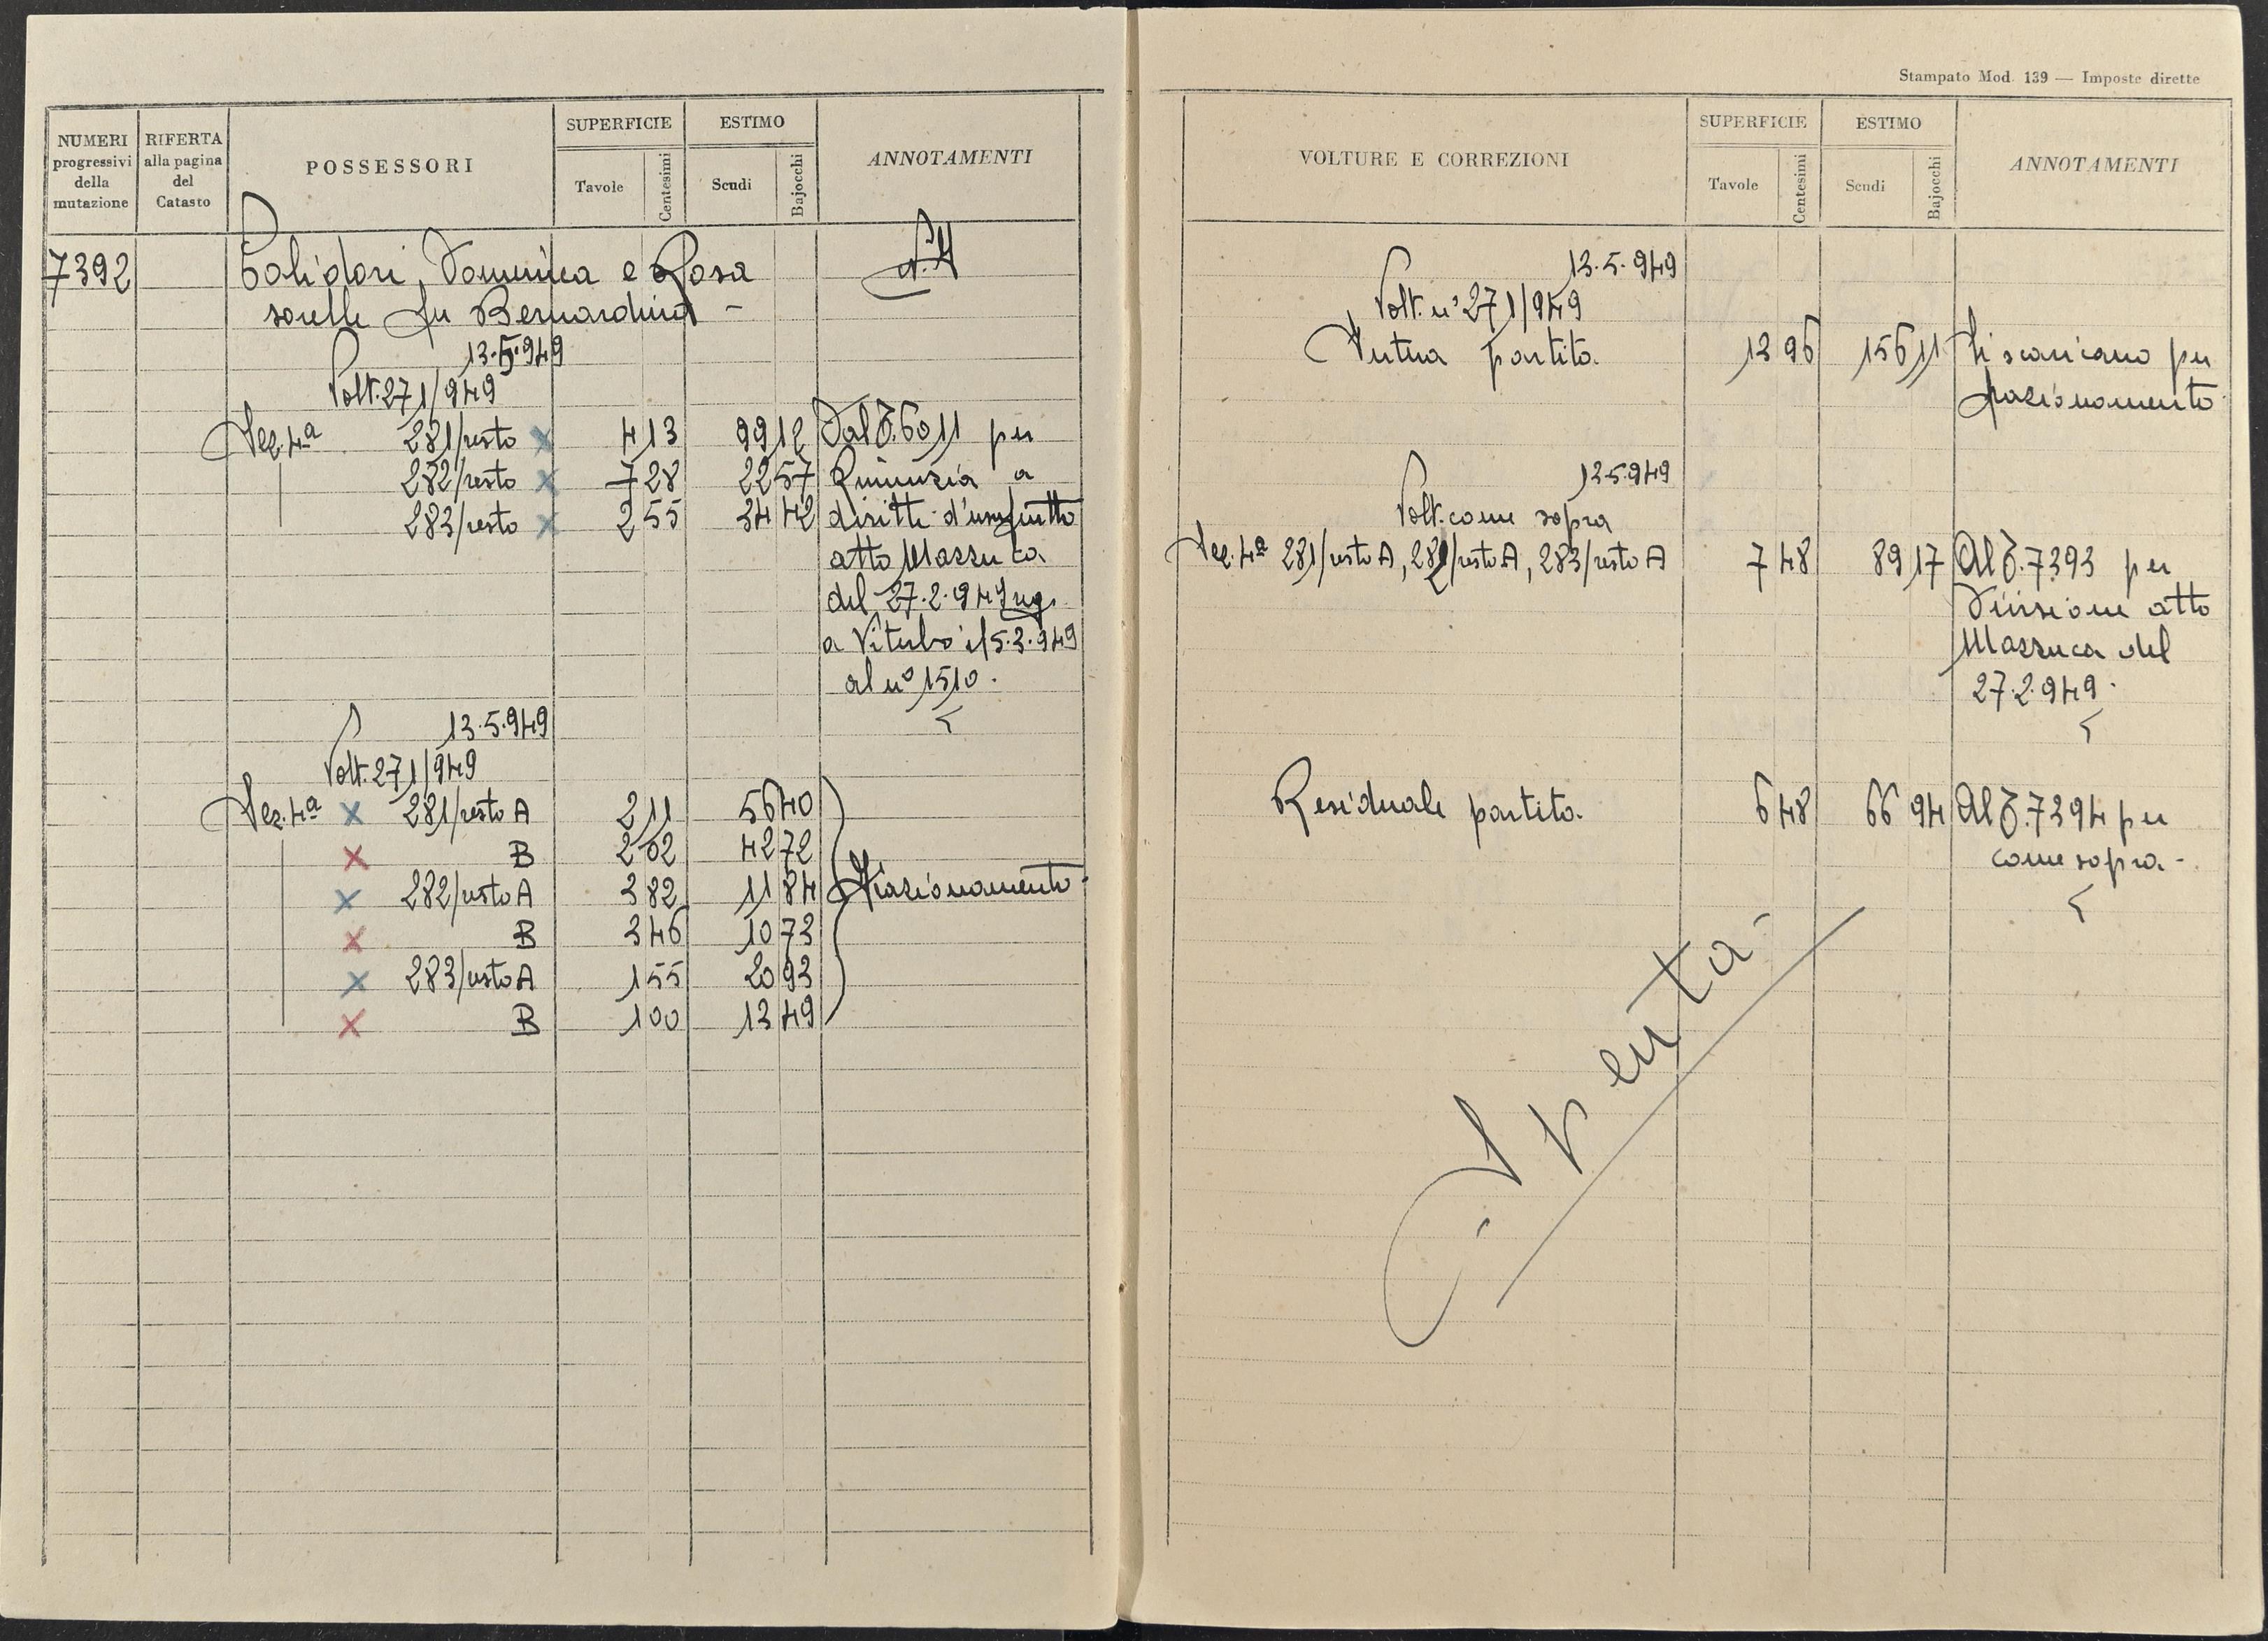 Stampato Mod. 139 — Imposte dirette
NUMERI progressivi della mutazione
RIFERTA alla pagina del Catasto
POSSESSORI
SUPERFICIE
Tavole
Centesimi
ESTIMO
Scudi
Bajocchi
ANNOTAMENTI
7392
Polidori Domenica e Rosa
sorelle fu Bernardino -
13.5.949
Volt. 271/949
Sez. 4ª 281/resto x 4 13 99 12 Dal T. 6011 per
282/resto x 7 28 22 57 Rinunzia a
283/resto x 2 55 34 42 diritti d'usufrutto
atto Mazzuca
del 27.2.949 reg.
a Viterbo il 5.3.949
al n° 1510.
13.5.949
Volt. 271/949
Sez. 4ª x 281/resto A 2 11 56 40
x B 2 02 42 72
x 282/resto A 3 82 11 84 Frazionamento
x B 3 46 10 73
x 283/resto A 1 55 20 93
x B 1 00 13 49
VOLTURE E CORREZIONI
SUPERFICIE
Tavole
Centesimi
ESTIMO
Scudi
Bajocchi
ANNOTAMENTI
13.5.949
Volt. n° 271/949
Intera partita. 13 96 156 11 Si scaricano per
frazionamento
13.5.949
Volt. come sopra
Sez. 4ª 281/resto A, 282/resto A, 283/resto A 7 48 89 17 Al T. 7393 per
Divisione atto
Mazzuca del
27.2.949.
Residuale partita. 6 48 66 94 Al T. 7394 per
come sopra -
Spenta